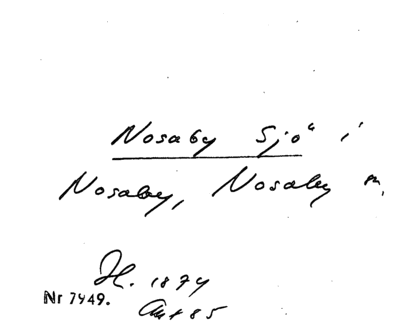 Nosaby Sjö i
Nosaby, Nosaby m.
H. 1874
Nr 7949.
Ant 85